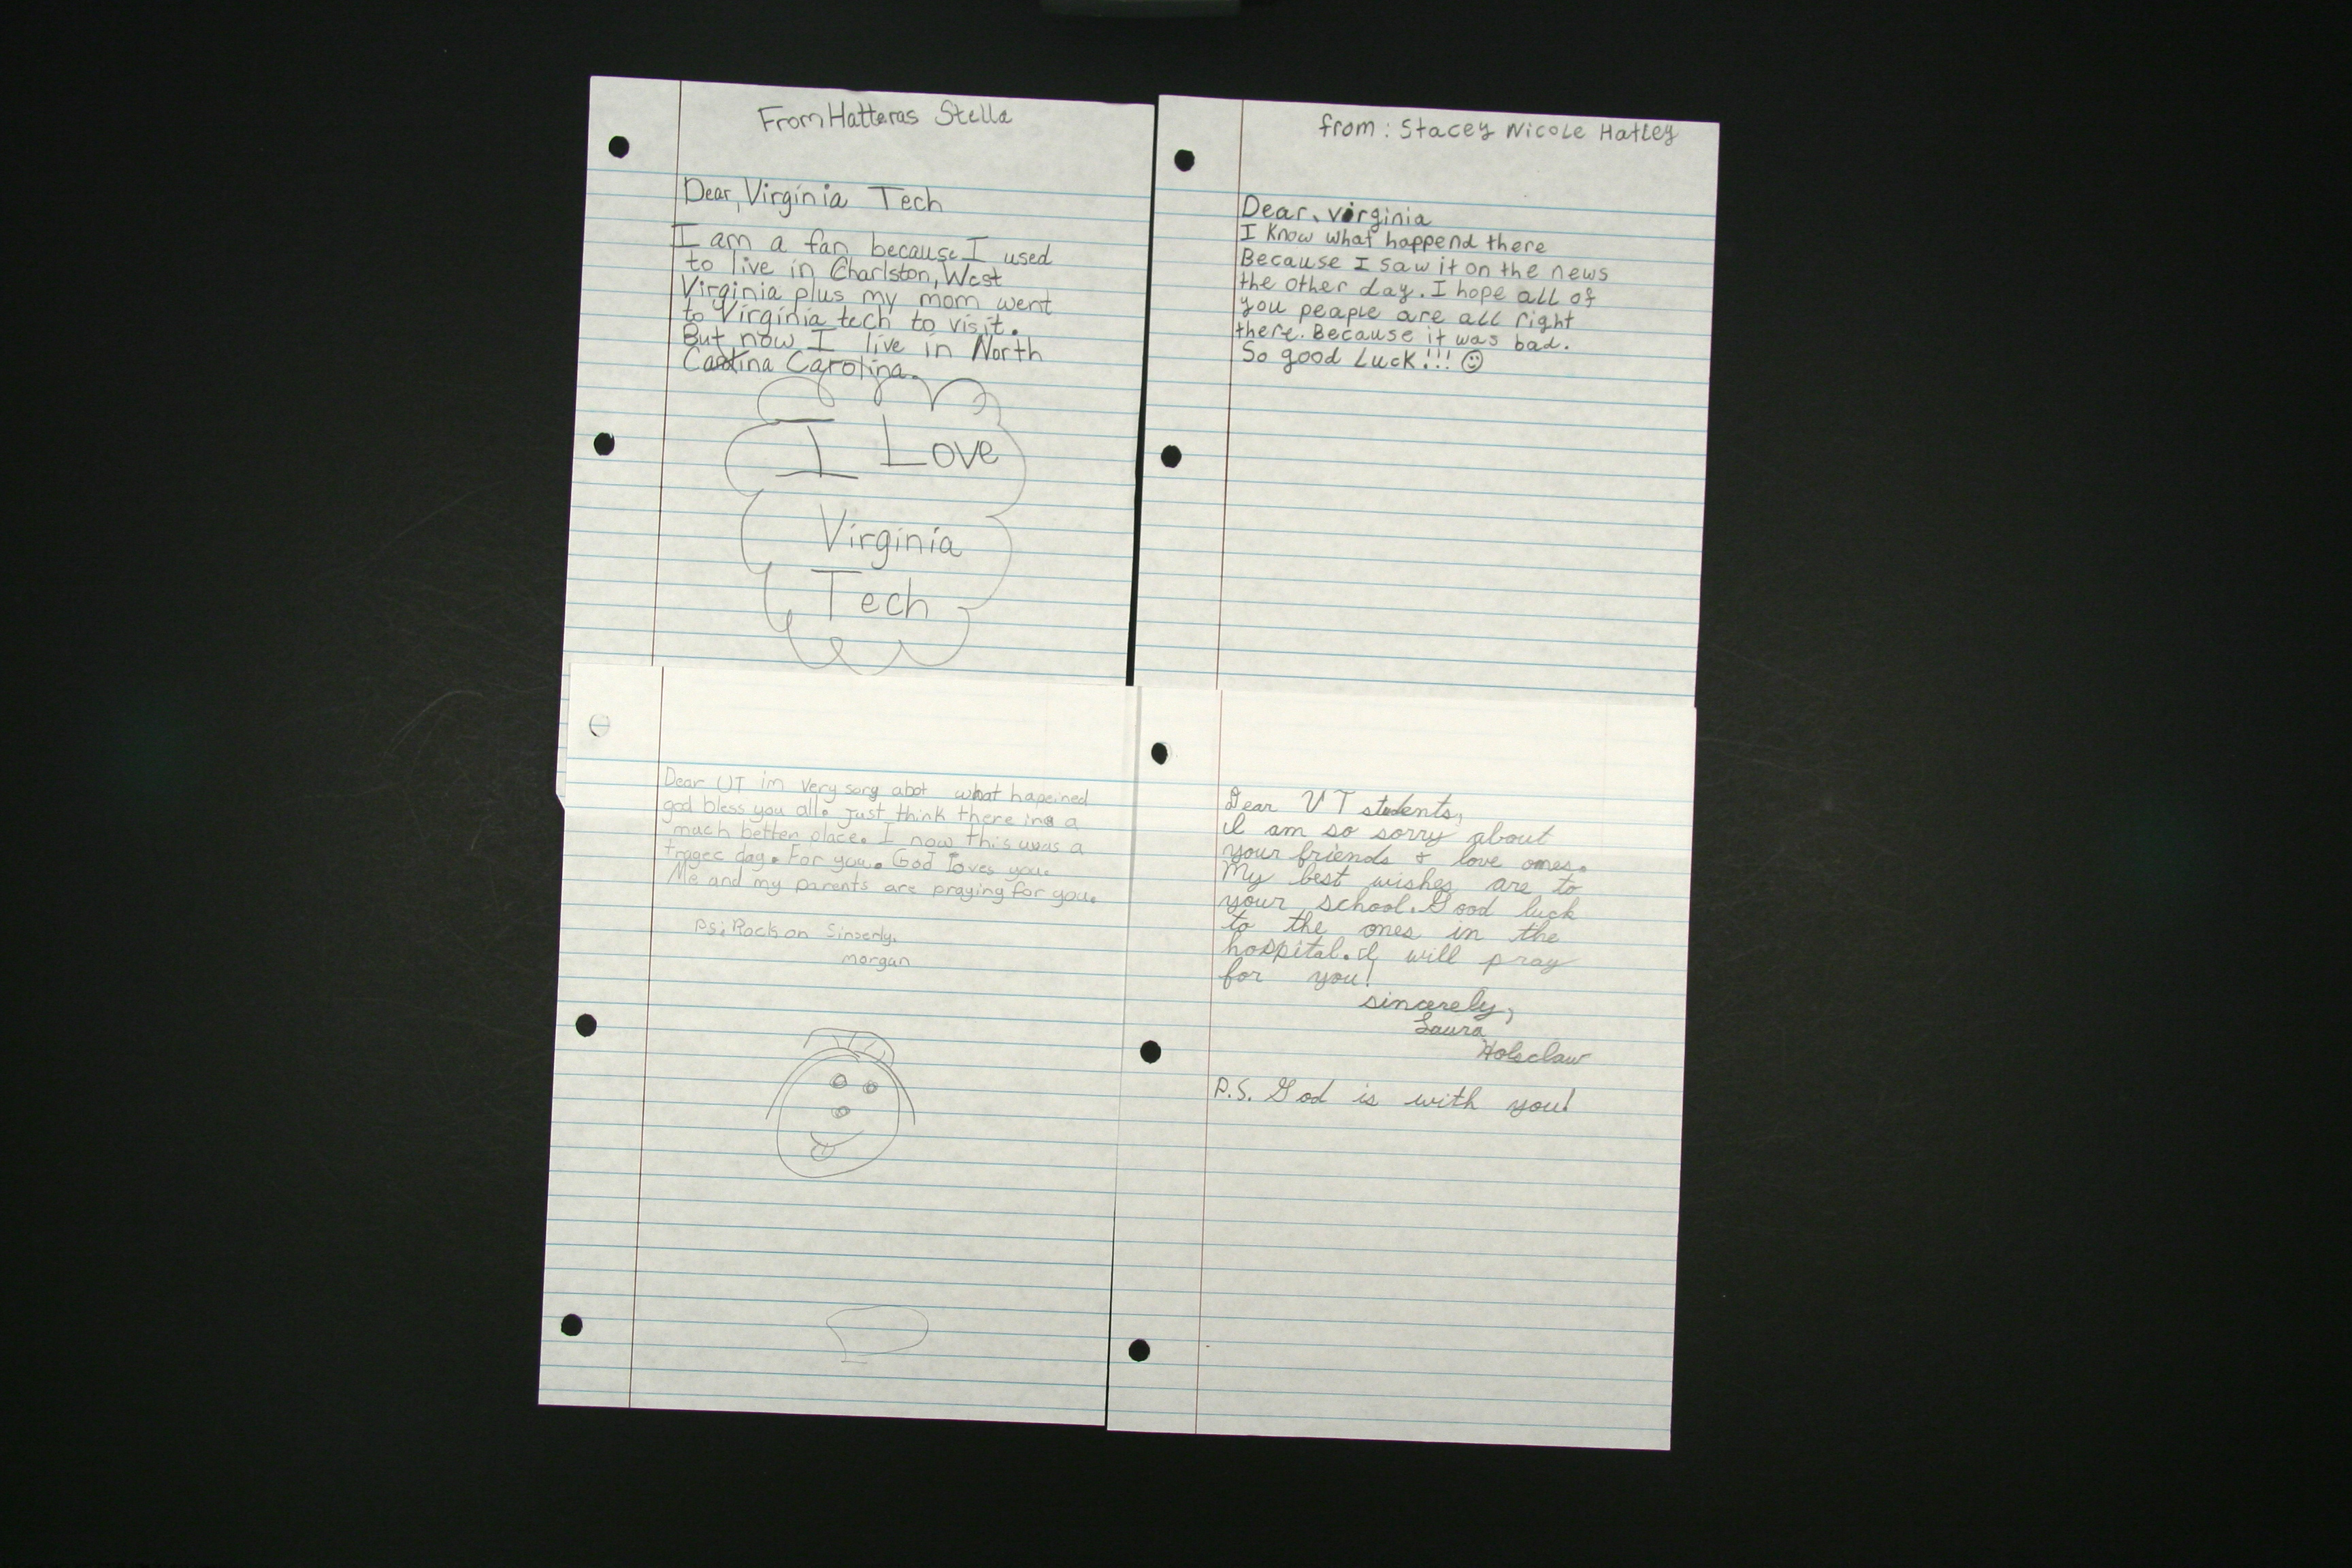 From Hatteras Stella
Dear, Virginia Tech
I am a fan because I used
to live in Charlston, West
Virginia plus my mom went
to Virginia tech to visit.
But now I live in North
Carolina.
I Love
Virginia
Tech
from: Stacey Nicole Hatley
Dear, virginia
I know what happend there
Because I saw it on the news
the other day. I hope all of
you peaple are all right
there. Because it was bad.
So good Luck!!! ☺
Dear VT im very sory abot what hapeined
god bless you all. Just think there in a
mach better place. I now this was a
tragec day. For you. God loves you.
Me and my parents are praying for you.
Ps: Rock on Sinserly,
morgan
Dear VT students,
I am so sorry about
your friends & love ones.
My best wishes are to
your school. Good luck
to the ones in the
hospital. I will pray
for you!
sincerely,
Laura
Holsclaw
P.S. God is with you!